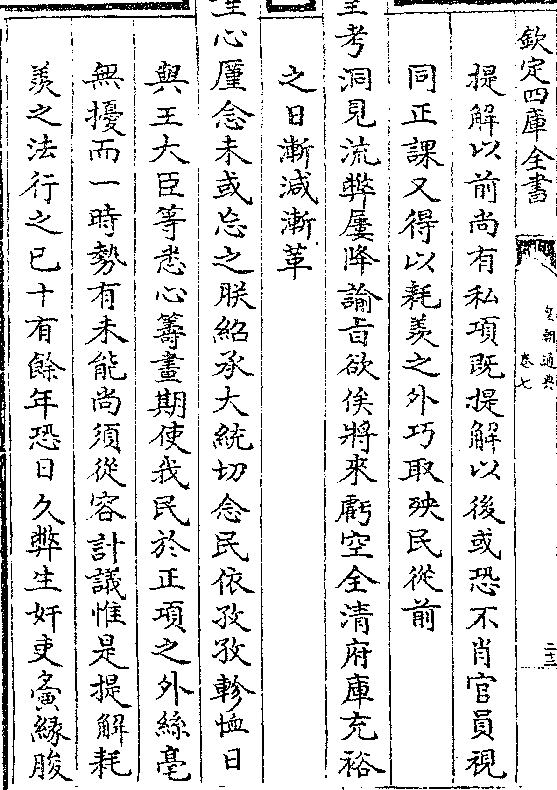 欽定四庫全書
皇朝通典
卷七
二十三
提解以前尚有私項既提解以後或恐不肖官員視
同正課又得以耗羨之外巧取殃民從前
皇考洞見流弊屢降諭旨欲俟將來虧空全清府庫充裕
之日漸減漸革
聖心厪念未或忘之朕紹承大統切念民依孜孜軫恤日
與王大臣等悉心籌畫期使我民於正項之外絲毫
無擾而一時勢有未能尚須從容計議惟是提解耗
羨之法行之已十有餘年恐日久弊生奸吏夤緣朘